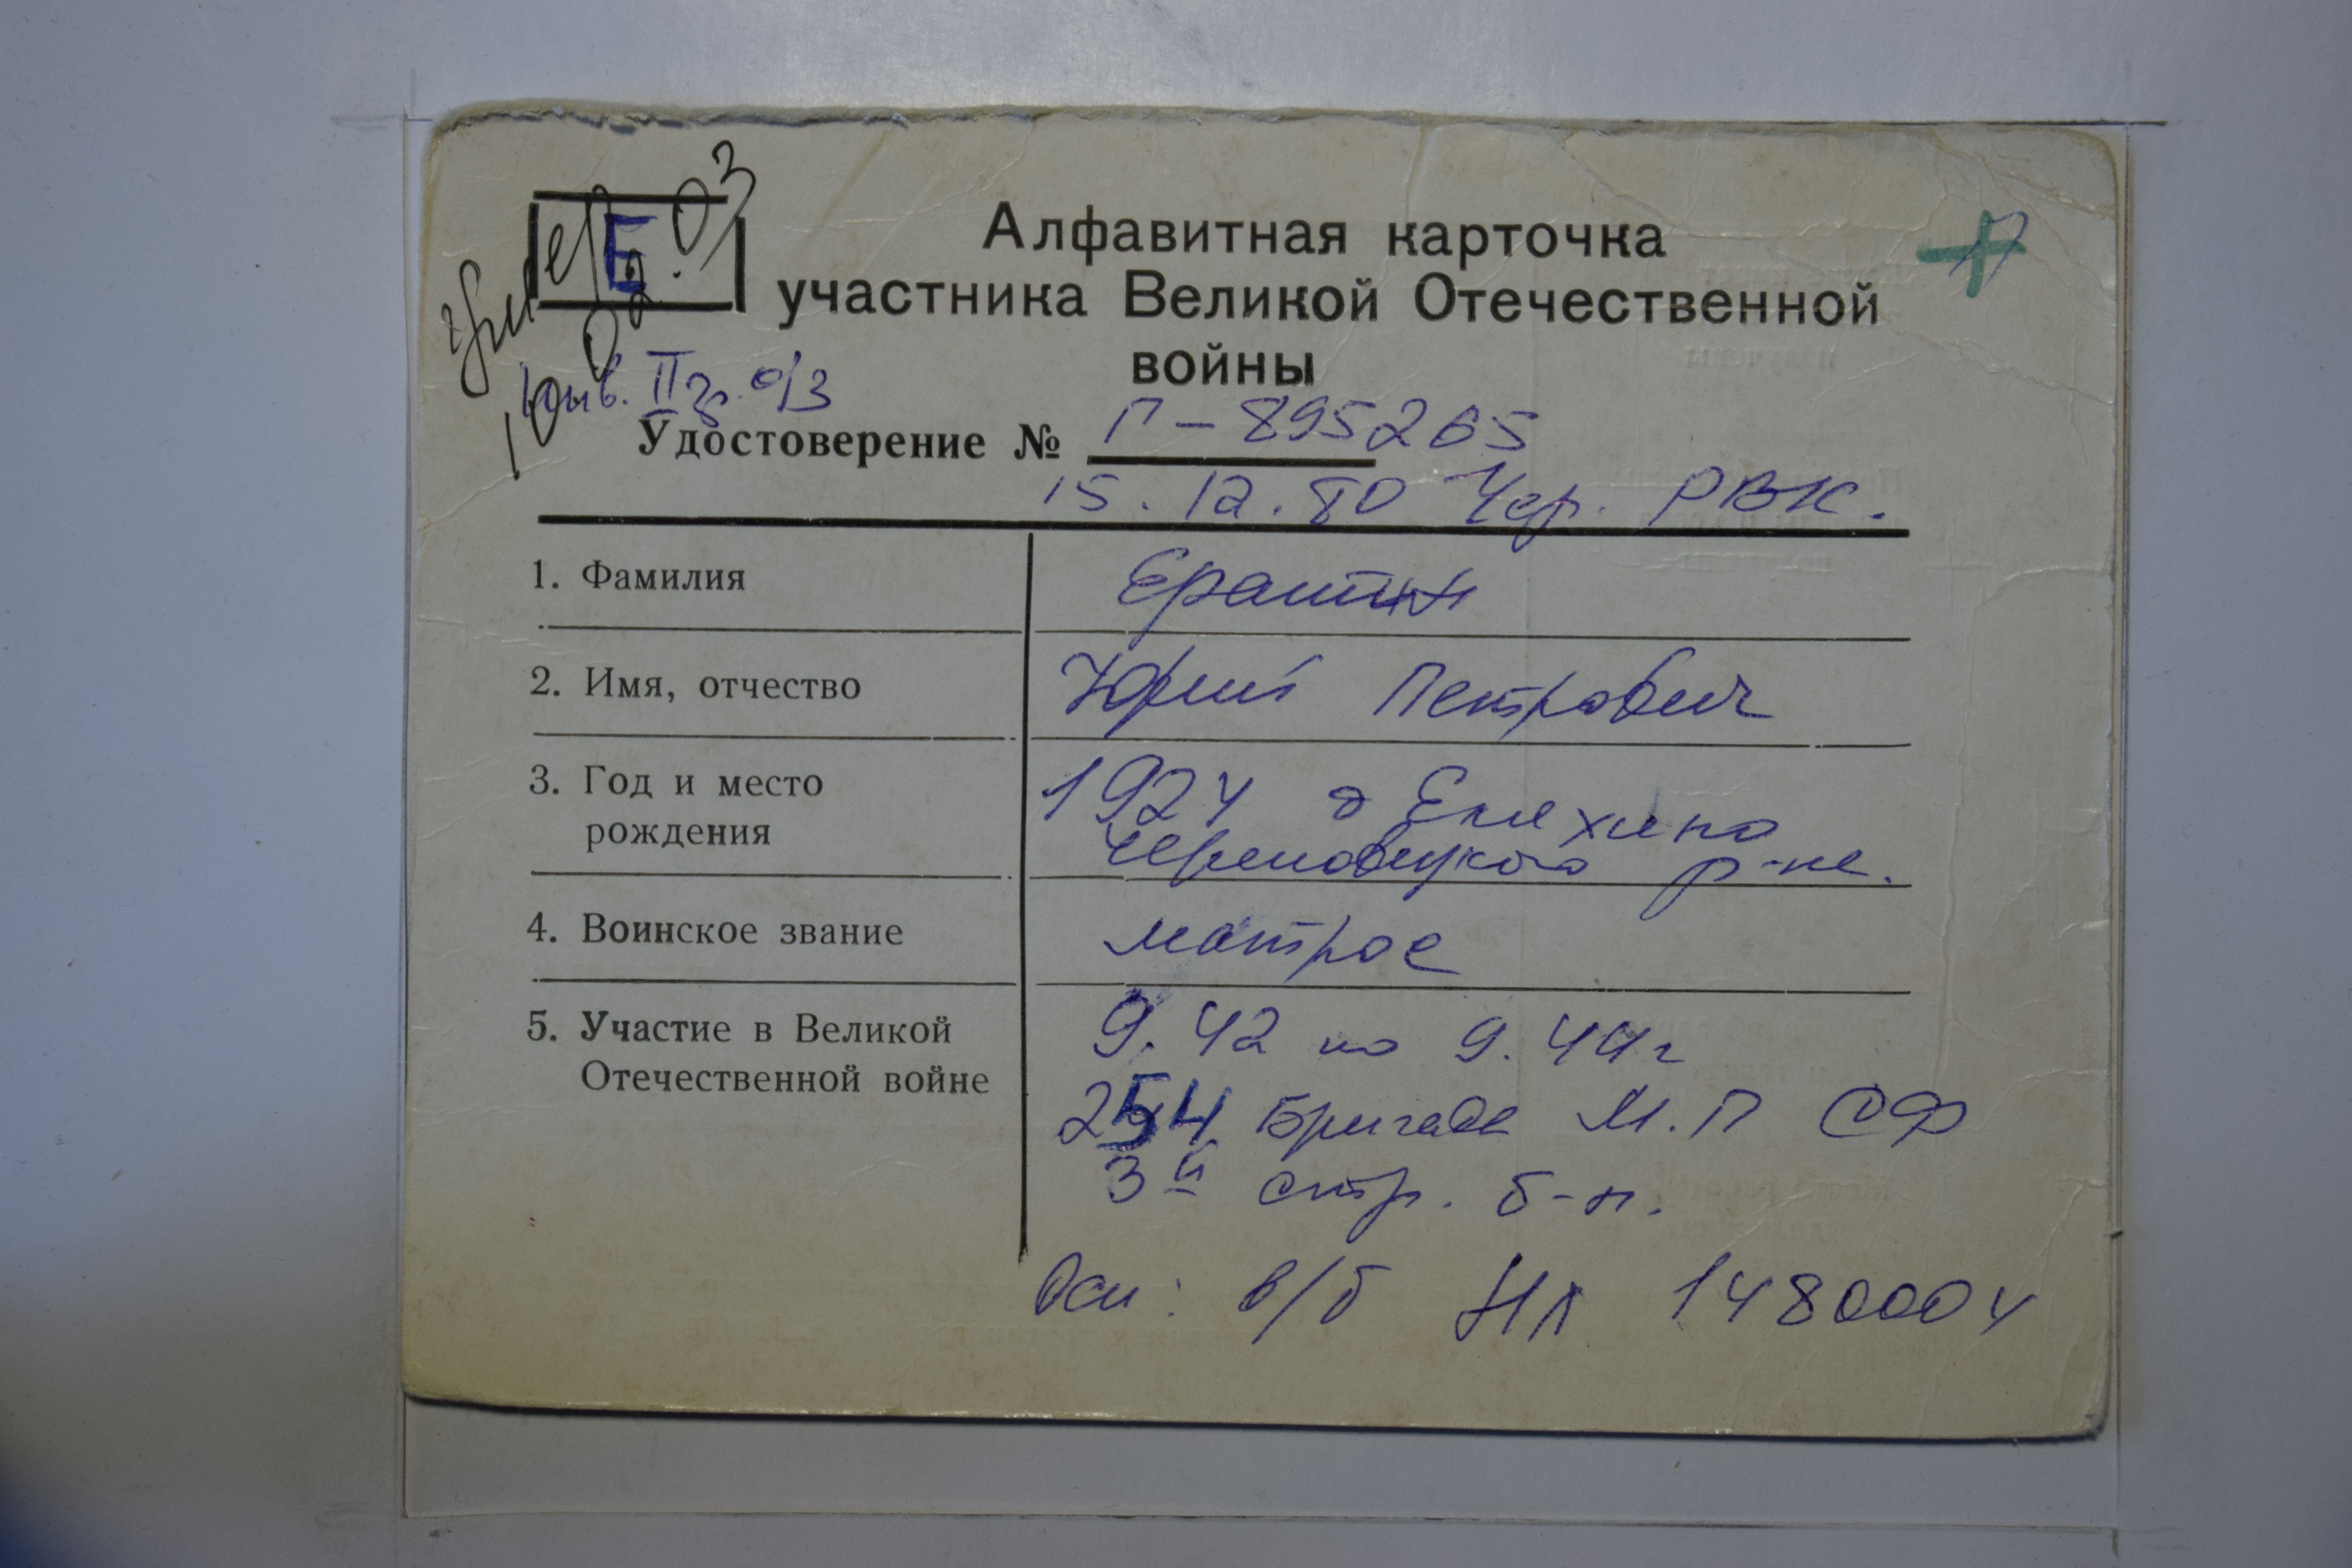 Е
умер 10.02.03
Алфавитная карточка
участника Великой Отечественной
войны
инв. II г. о/з
Удостоверение № Г-895265
15.12.80 Чер. РВК.
1. Фамилия
Ераткин
2. Имя, отчество
Юрий Петрович
3. Год и место
рождения
1924 д
Череповецкого р-на.
4. Воинское звание
матрос
5. Участие в Великой
Отечественной войне
9.42 по 9.44г
254 бригада М.П СФ
3й стр. б-н.
Осн: в/б НЛ 1480004